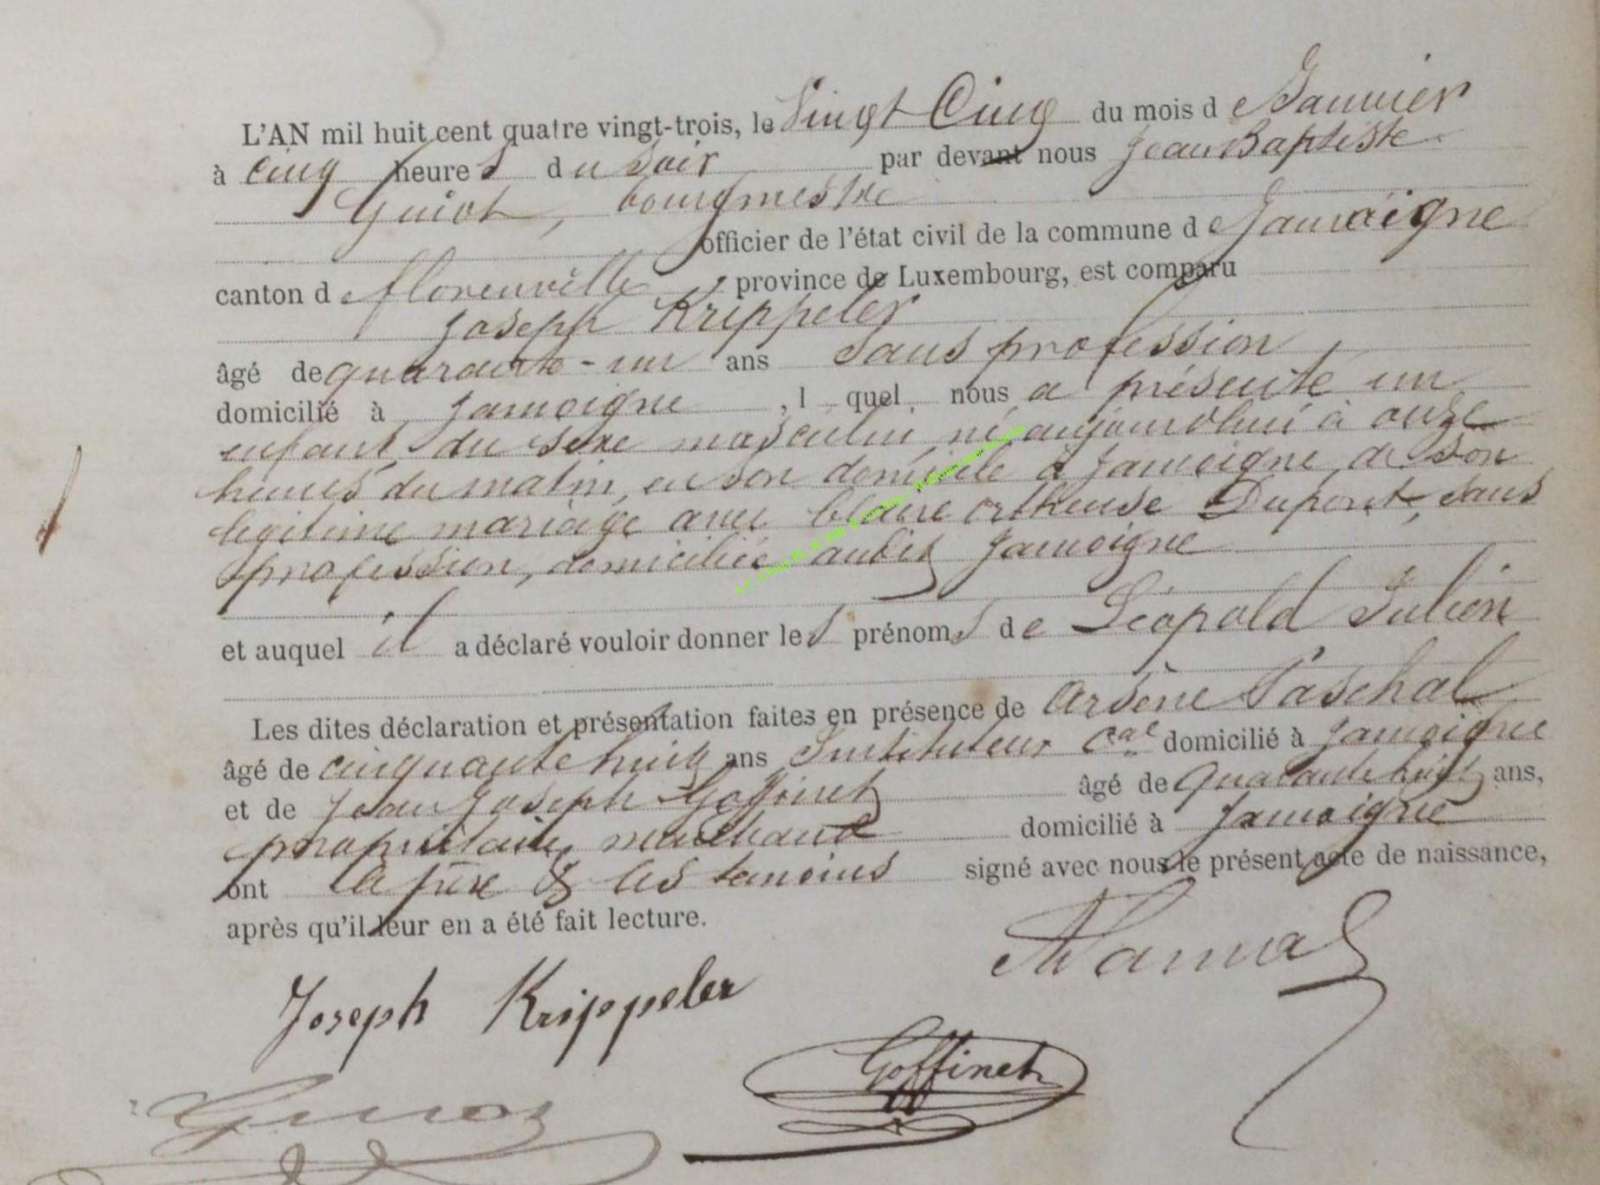 L'AN mil huit cent quatre vingt-trois, le Vingt Cinq du mois d e Janvier
à cinq heure s d u soir par devant nous Jean Baptiste
Guiot, bourgmestre
officier de l'état civil de la commune d e Jamoigne
canton d e florenville, province de Luxembourg, est comparu
Joseph Krippeler
âgé de quarante-un ans Sans profession
domicilié à Jamoigne, l quel nous a présenté un
enfant du sexe masculin né aujourd'hui à onze
heures du matin, en son domicile à Jamoigne, de son
légitime mariage avec Claire ortheuse Dupont, sans
profession, domiciliée audit Jamoigne
et auquel il a déclaré vouloir donner le s prénom s d e Léopold Julien
Les dites déclaration et présentation faites en présence de Arsène Paschal
âgé de cinquante huit ans Instituteur cal domicilié à Jamoigne
et de Jean Joseph Goffinet âgé de Quarante huit ans,
propriétaire, marchand domicilié à Jamoigne
ont le père & les témoins signé avec nous le présent acte de naissance,
après qu'il leur en a été fait lecture.
Joseph Krippeler
Goffinet
Guiot